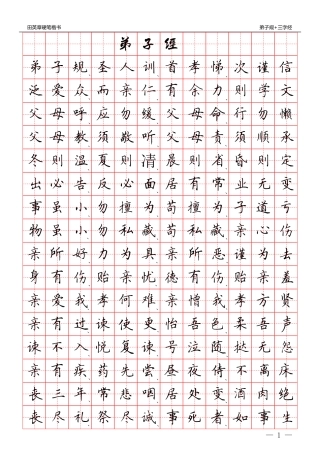 田英章硬笔楷书
弟子规+三字经
弟子經
弟子规圣人训首孝悌次谨信
泛爱众而亲仁有余力则学文
父母呼应勿缓父母命行勿懒
父母教须敬听父母责须顺承
冬则温夏则清晨则省昏则定
出必告反必面居有常业无变
事虽小勿擅为苟擅为子道亏
物虽小勿私藏苟私藏亲心伤
亲所好力为具亲所恶谨为去
身有伤贻亲忧德有伤贻亲羞
亲爱我孝何难亲憎我孝方贤
亲有过谏使更怡吾色柔吾声
谏不入悦复谏号泣随挞无怨
亲有疾药先尝昼夜侍不离床
丧三年常悲咽居处变酒肉绝
丧尽礼祭尽诚事死者如事生
— 1 —